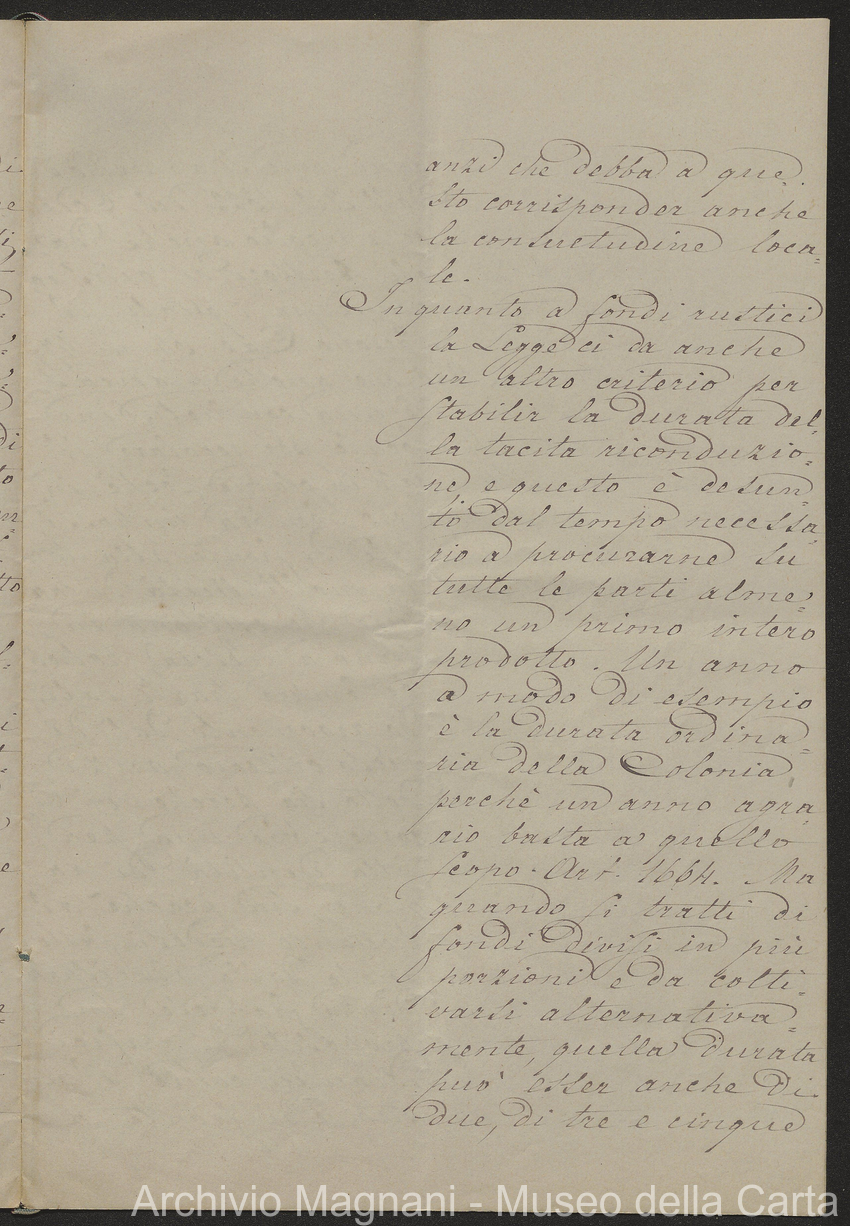 anzi che debba a que=
sto corrisponder anche
la consuetudine loca=
le.
In quanto a fondi rustici
la Legge ci da anche
un altro criterio per
stabilir la durata del=
la tacita riconduzio=
ne e questo è desun=
to dal tempo necessa=
rio a procurarne su
tutte le parti alme=
no un primo intero
prodotto. Un anno
a modo di esempio
è la durata ordina=
ria della Colonia
perchè un anno agra=
rio basta a quello
scopo. Art. 1664. Ma
quando si tratti di
fondi divisi in più
porzioni e da colti=
varsi alternativa=
mente, quella durata
può esser anche di
due, di tre e cinque
Archivio Magnani - Museo della Carta